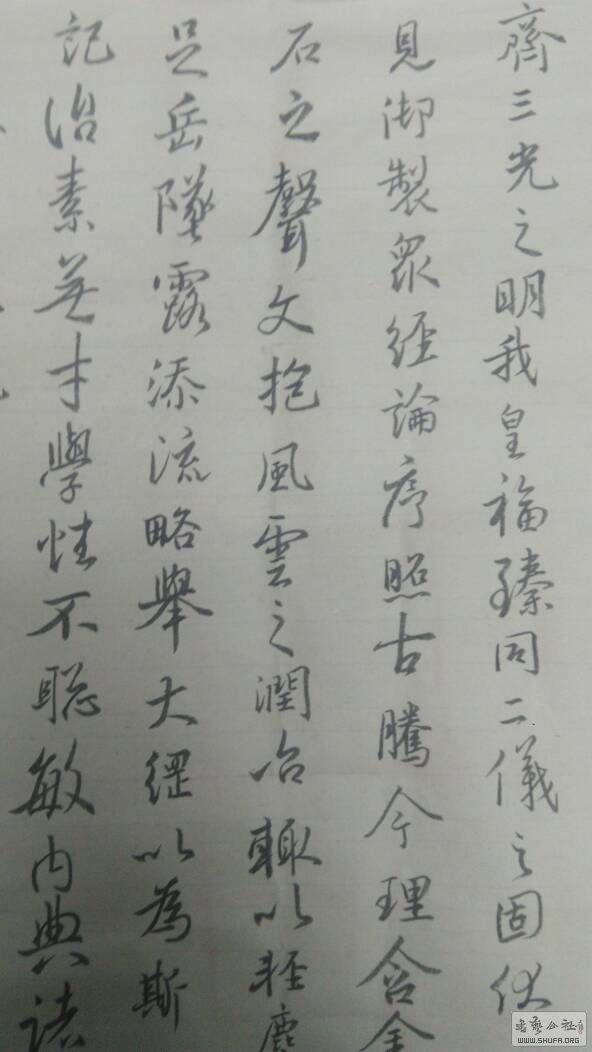 齊三光之明我皇福臻同二儀之固伏
見御製眾經論序照古騰今理含金
石之聲文抱風雲之潤治輒以輕塵
足岳墜露添流略舉大綱以為斯
記治素無才學性不聰敏內典諸
書藝公社
WWW.SHUFA.ORG